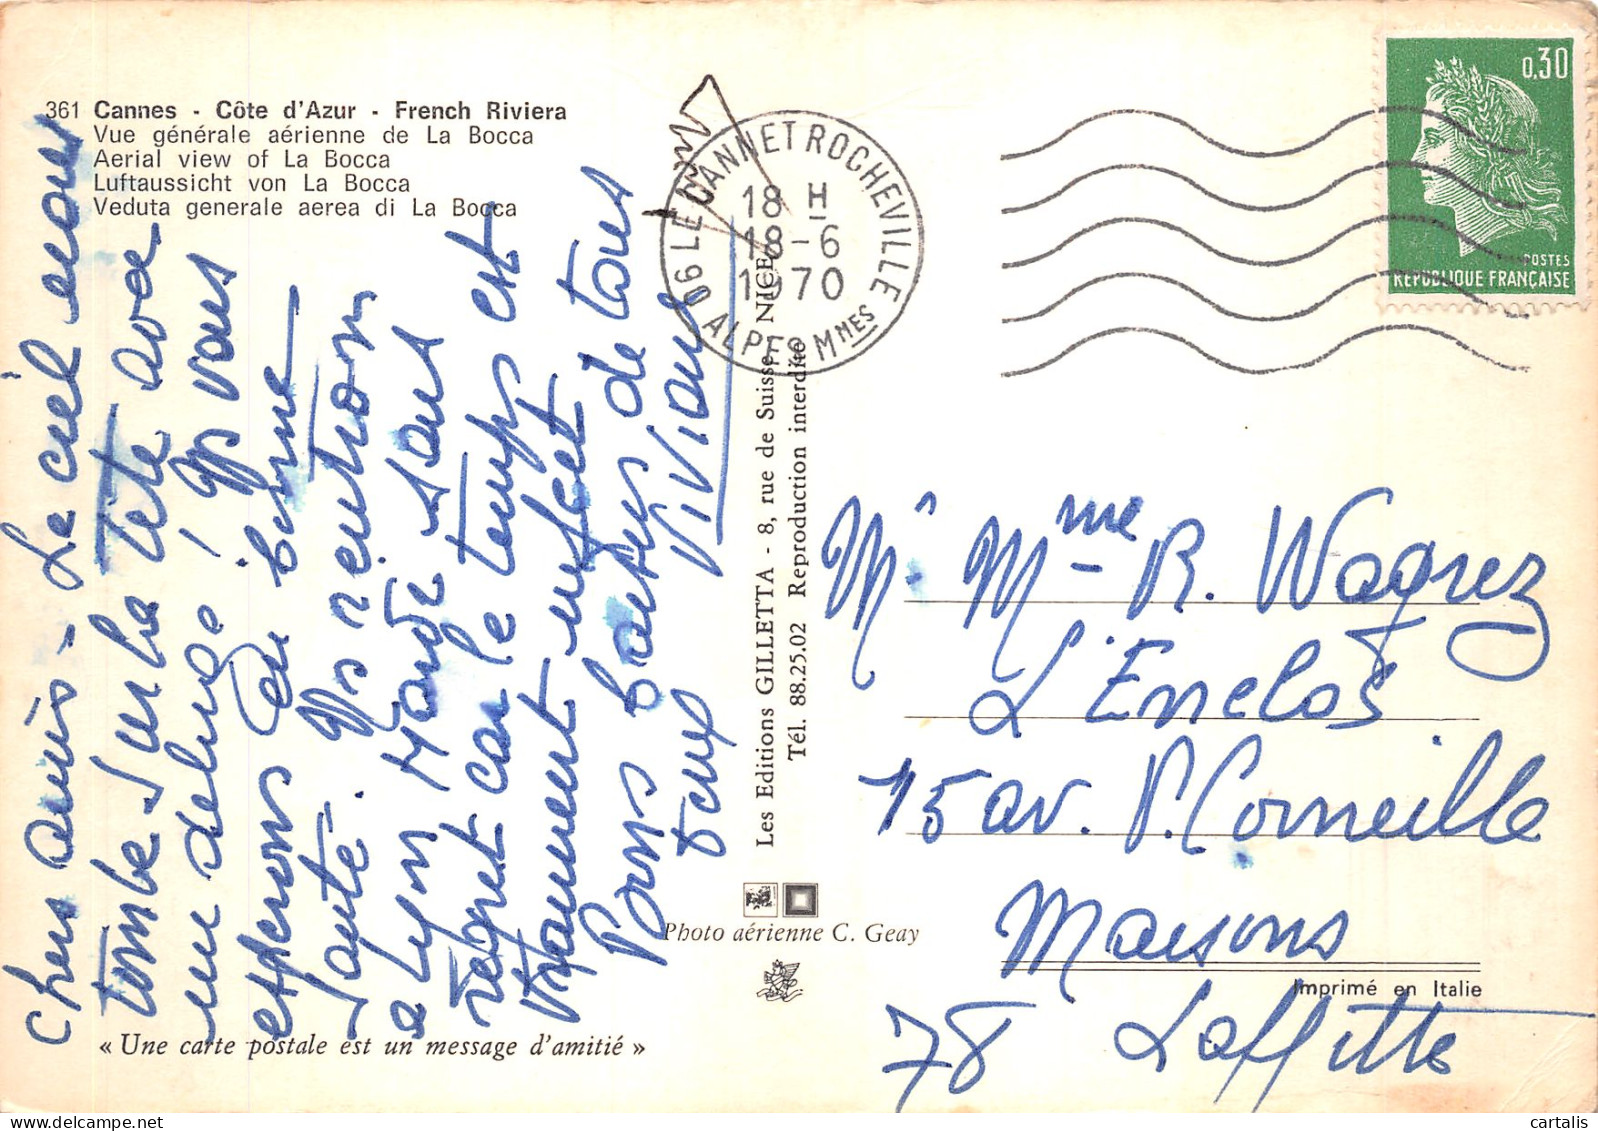 361 Cannes - Côte d'Azur - French Riviera
Vue générale aérienne de La Bocca
Aerial view of La Bocca
Luftaussicht von La Bocca
Veduta generale aerea di La Bocca
Chers amis - Le ciel nous
tombe sur la tête avec
un déluge ! Ns vous
espérons en bonne
santé. Ns rentrons
a Lyon Mardi sans
regret car le temps est
vraiment infect
Bons baisers de tous
deux Viviane
« Une carte postale est un message d'amitié »
Les Editions GILLETTA - 8, rue de Suisse, NICE
Tél. 88.25.02 Reproduction interdite
Photo aérienne C. Geay
06 LE CANNET ROCHEVILLE
18 H
18-6
1970
ALPES Mmes
0,30
POSTES
REPUBLIQUE FRANÇAISE
Mr Mme R. Wagrez
L'Enclos
15 av. P. Corneille
Maisons
Imprimé en Italie
78 Laffitte
cartalis